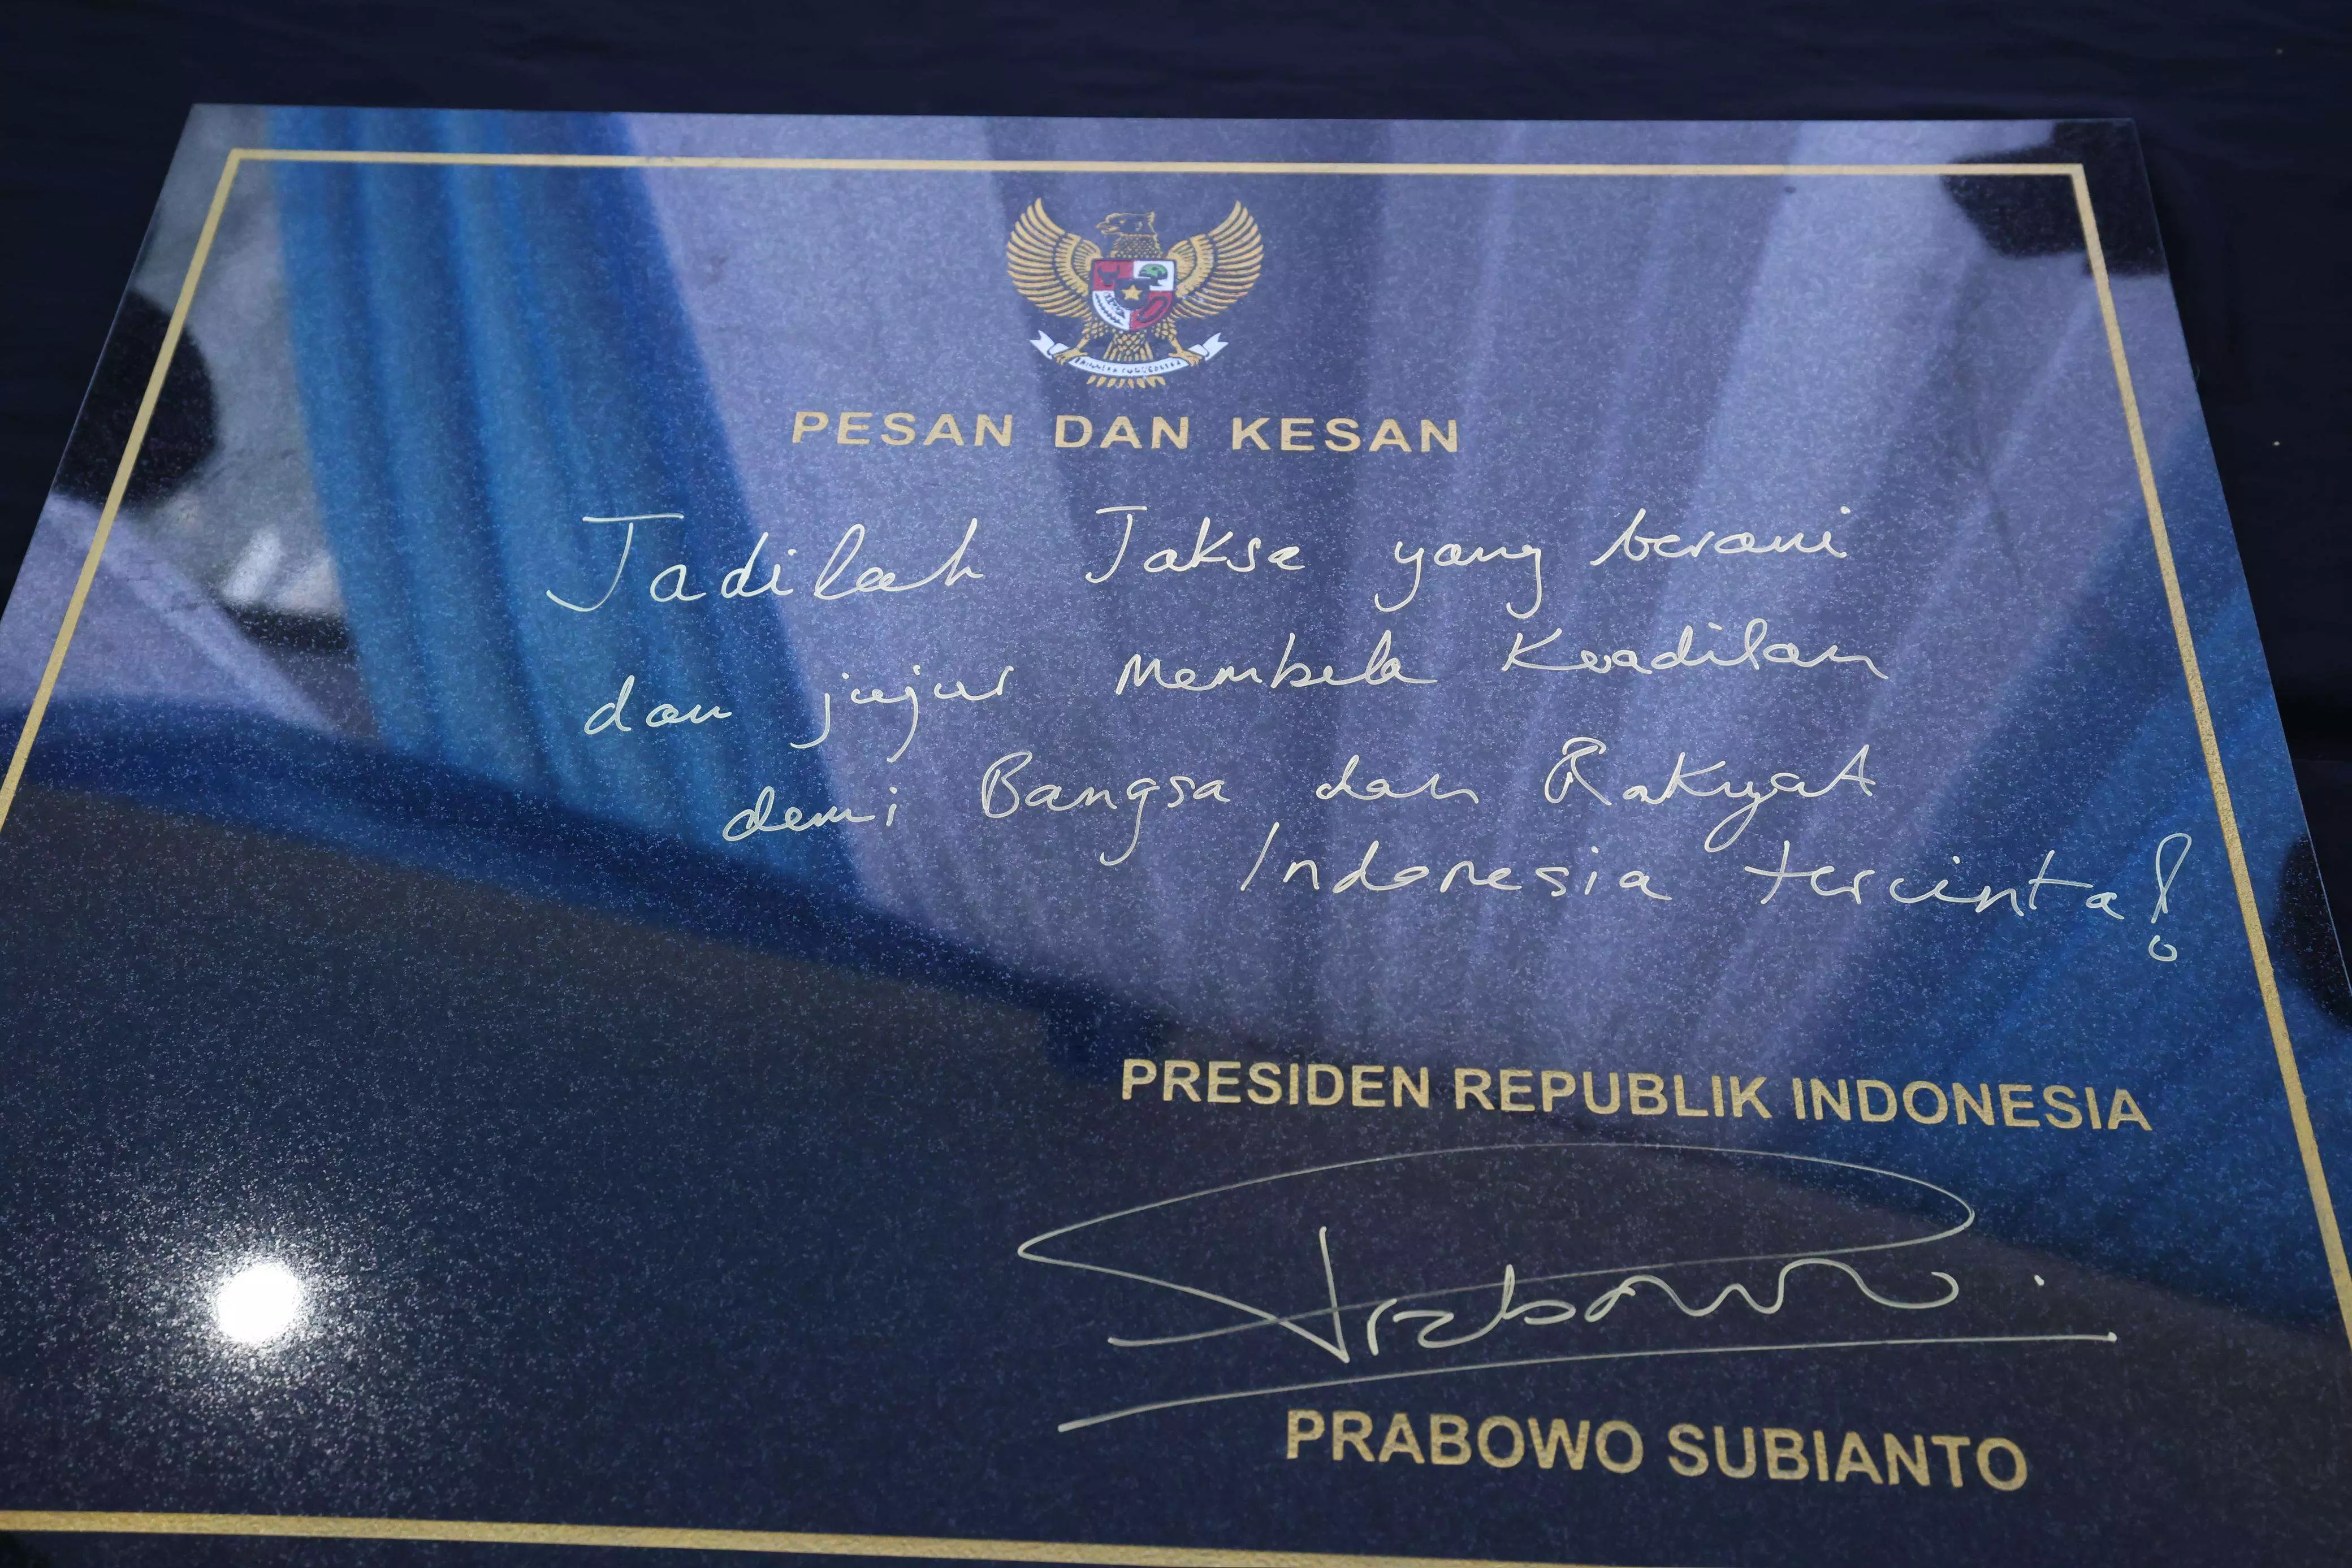 PESAN DAN KESAN
Jadilah Jaksa yang berani
dan jujur Membela Keadilan
demi Bangsa dan Rakyat
Indonesia tercinta!
PRESIDEN REPUBLIK INDONESIA
Prabowo
PRABOWO SUBIANTO